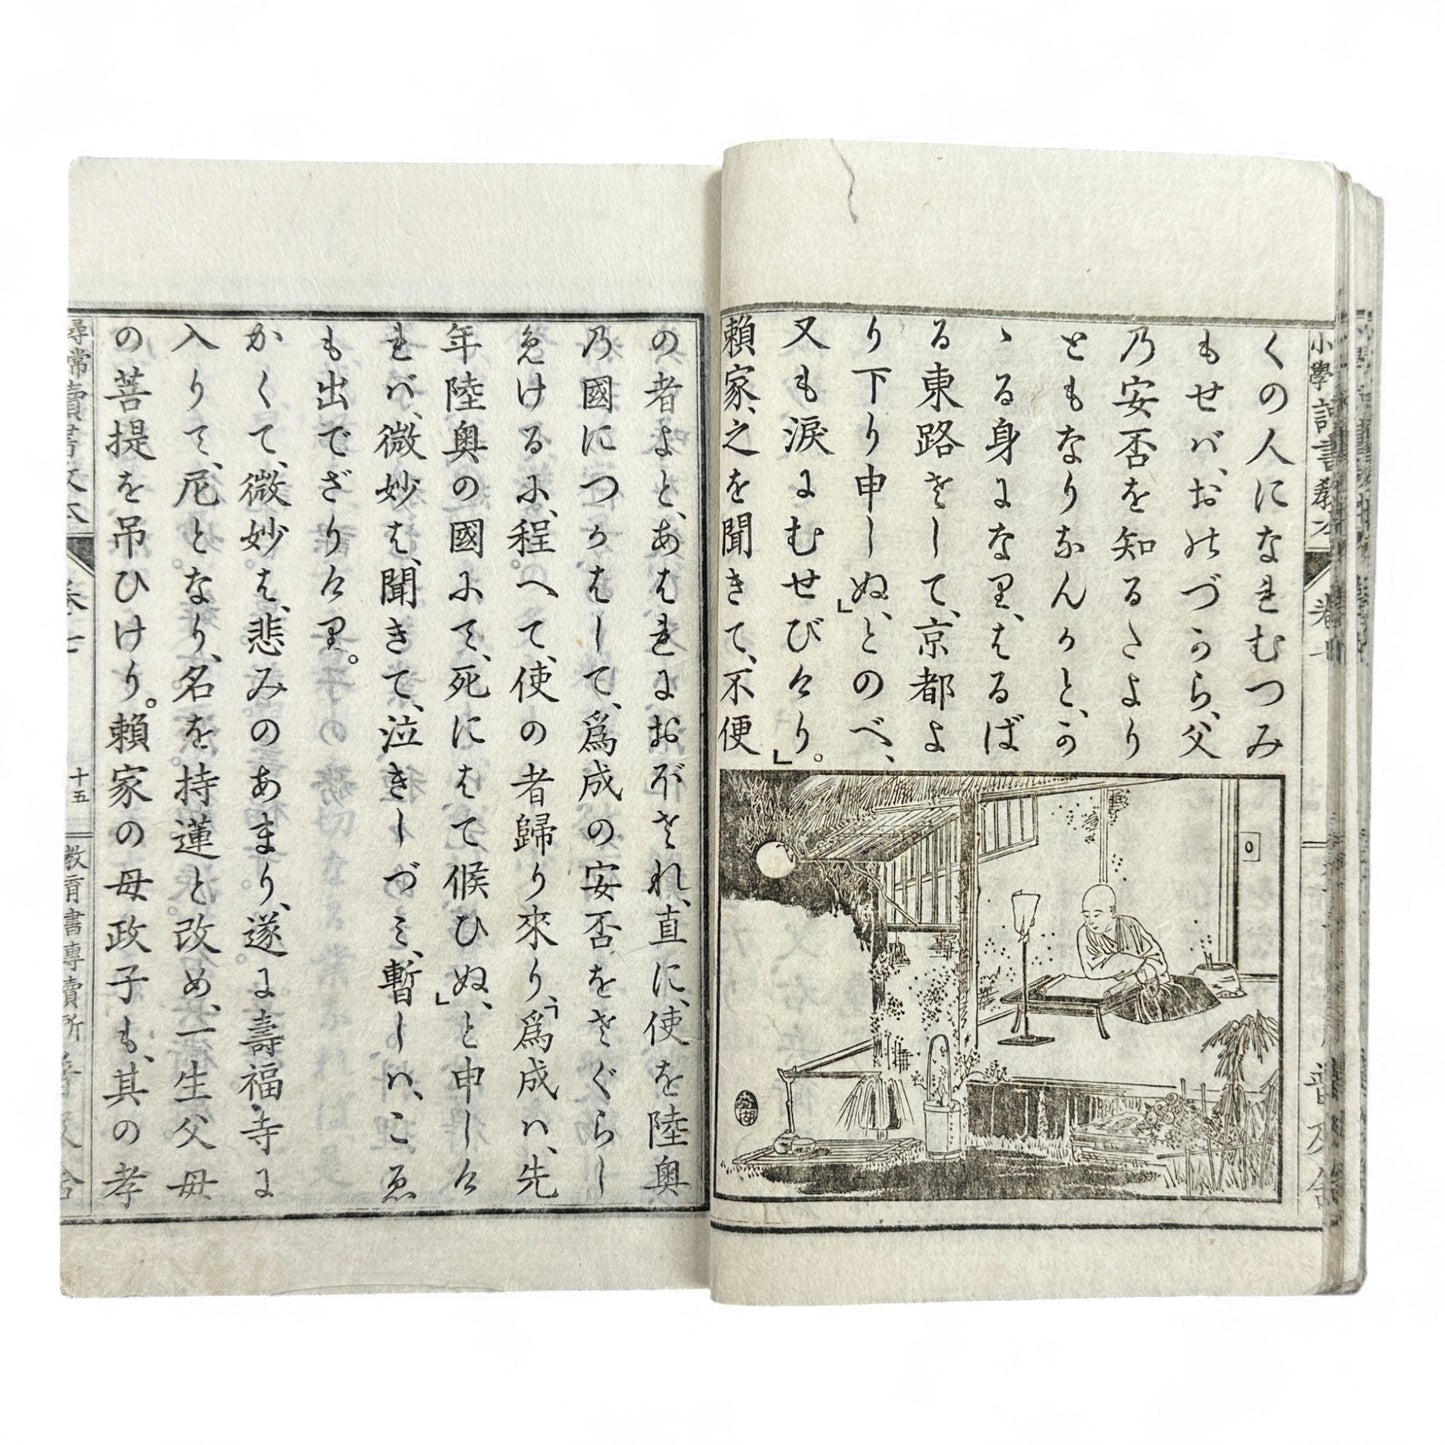 くの人になれむつみ
もせバ、おのづから、父
の安否を知るたより
ともなりなんかと、か
ゝる身になり、はるば
る東路をして、京都よ
り下り申しぬ」とのべ、
又も涙にむせびけり。」
頼家、之を聞きて、不便
の者よと、あはれにおぼされ、直に、使を陸奥
の國につかはして、爲成の安否をさぐらし
めけるに、程へて、使の者歸り來り、「爲成ハ、先
年陸奥の國にて、死にはて候ひぬ」と申しけ
れバ、微妙は、聞きて、泣きしづミ、暫しハ、こゑ
も出でざりけり。
かくて、微妙は、悲みのあまり、遂に壽福寺に
入りて、尼となり、名を持蓮と改め、一生父母
の菩提を吊ひけり。頼家の母政子も、其の孝
尋常讀書教本
卷七
十五
教育書專賣所
普及舍